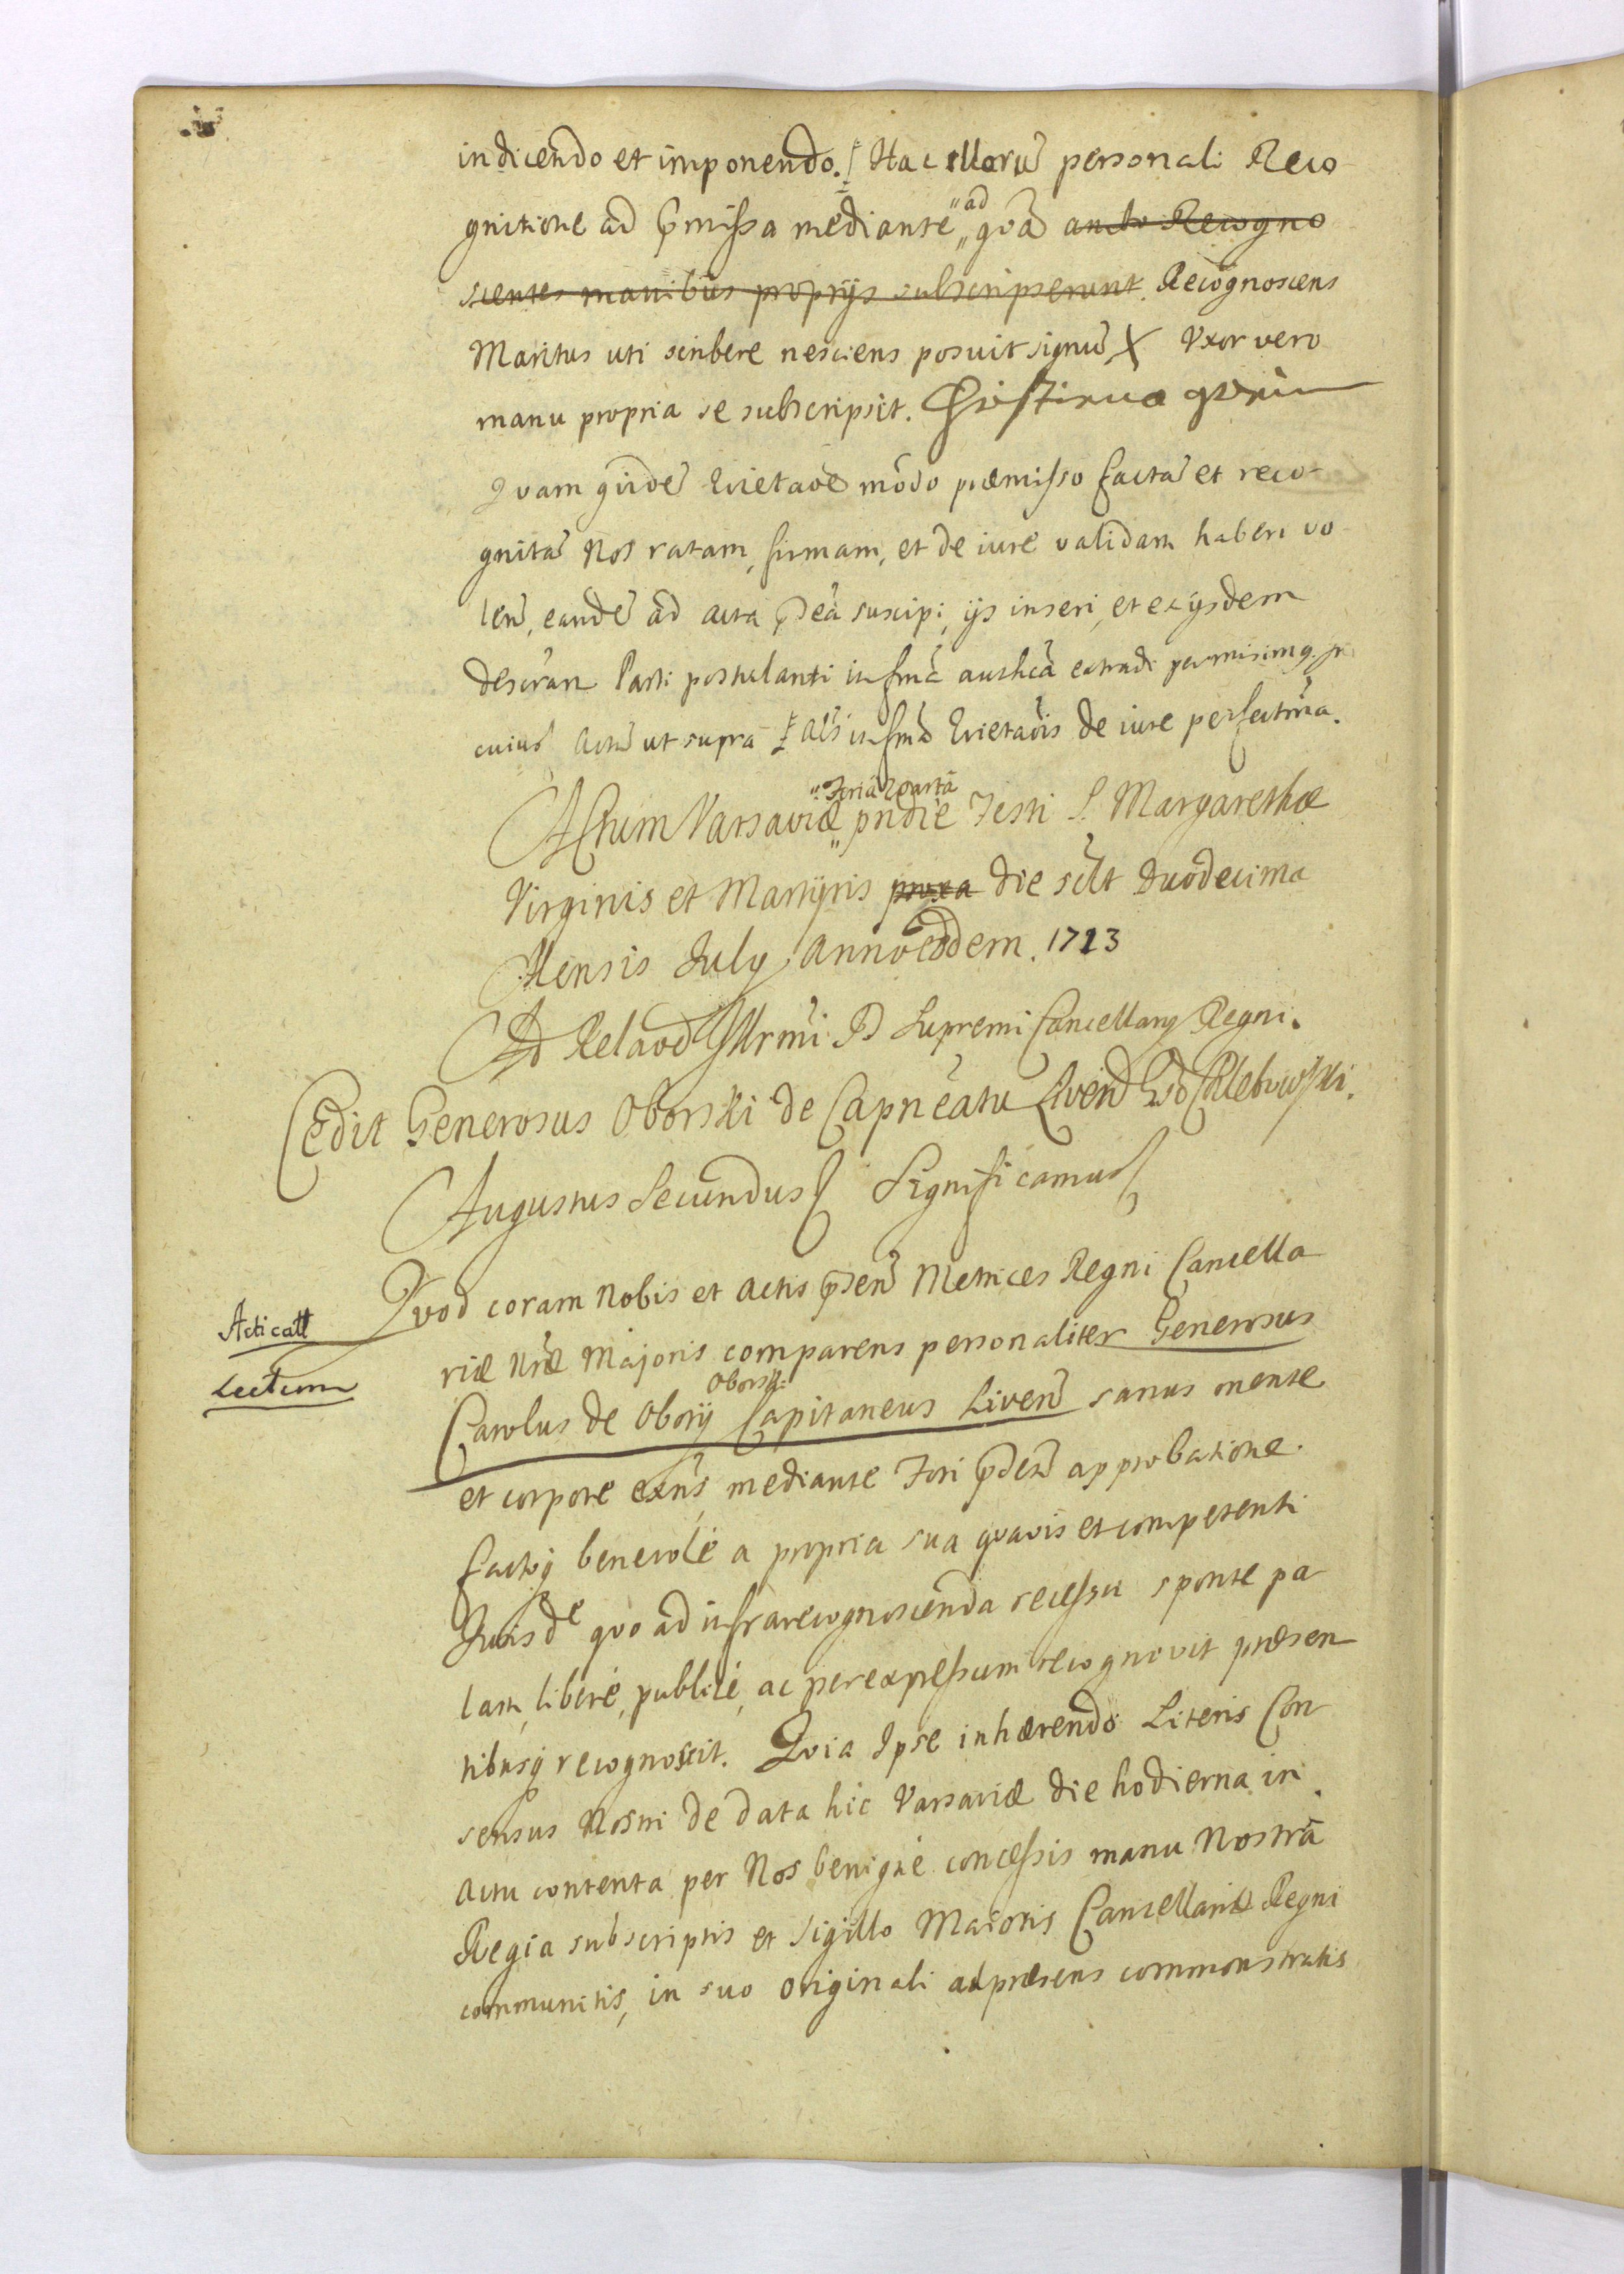 indicendo et imponendo. Hac illorũ personali Reco-
gnitione ad p̃missa mediante ad qvã ambo Recogno
scentes manibus proprijs subscripserunt. Recognoscens
Maritus uti scribere nesciens posuit signũ X Vxor vero
manu propria se subscripsit.
Qvam qvidẽ Qvietaoẽ modo præmisso factã et reco-
gnitã Nos ratam, firmam, et de iure validam haberi vo-
leñ, eandẽ ad acta p̃dcã suscipi, ijs inseri, et ex ijsdem
Parti postulanti in fm̃ã autħcã extradi permisimq.
cuius Actũ ut supra als̃ in fm̃ã Qvietaõis de iure perfectm̃a.
Actum Varsaviæ Feria Qvarta pridie Festi S. Margarethæ
Virginis et Martyris proxa die scĩlt Duodecima
Mensis July Anno eodem. 1723
Ad Relaoẽ Illrmi D Supremi Cancellary Regni.
Cedit Generosus Oborski de Capñeatu Liveñ Gdo Chlebowski.
Augustus Secundus Significamus
Acticatt
Lectum
Qvod coram Nobis et Actis p̃señ Metrices Regni Cancella
riæ Nr̃æ Majoris comparens personaliter Generosus
Carolus de Obory Oborski Capitaneus Liveñ sanus mente
et corpore exñs, mediante Fori p̃señ approbatione
factoq benevolè a propria sua qvavis et competenti
Jurisde qvo ad infrarecognoscenda recessu sponte pa
lam, liberè, publicè, ac per expressum recognovit præsen
tibusq recognoscit. Qvia Ipse inhærendo Literis Con
sensus Nostri de data hic Varsaviæ die hodierna in
Actu contenta per Nos benignè concessis manu Nostrâ
Regia subscriptis et Sigillo Maioris Cancellariæ Regni
communitis, in suo Originali ad præsens commonstratis